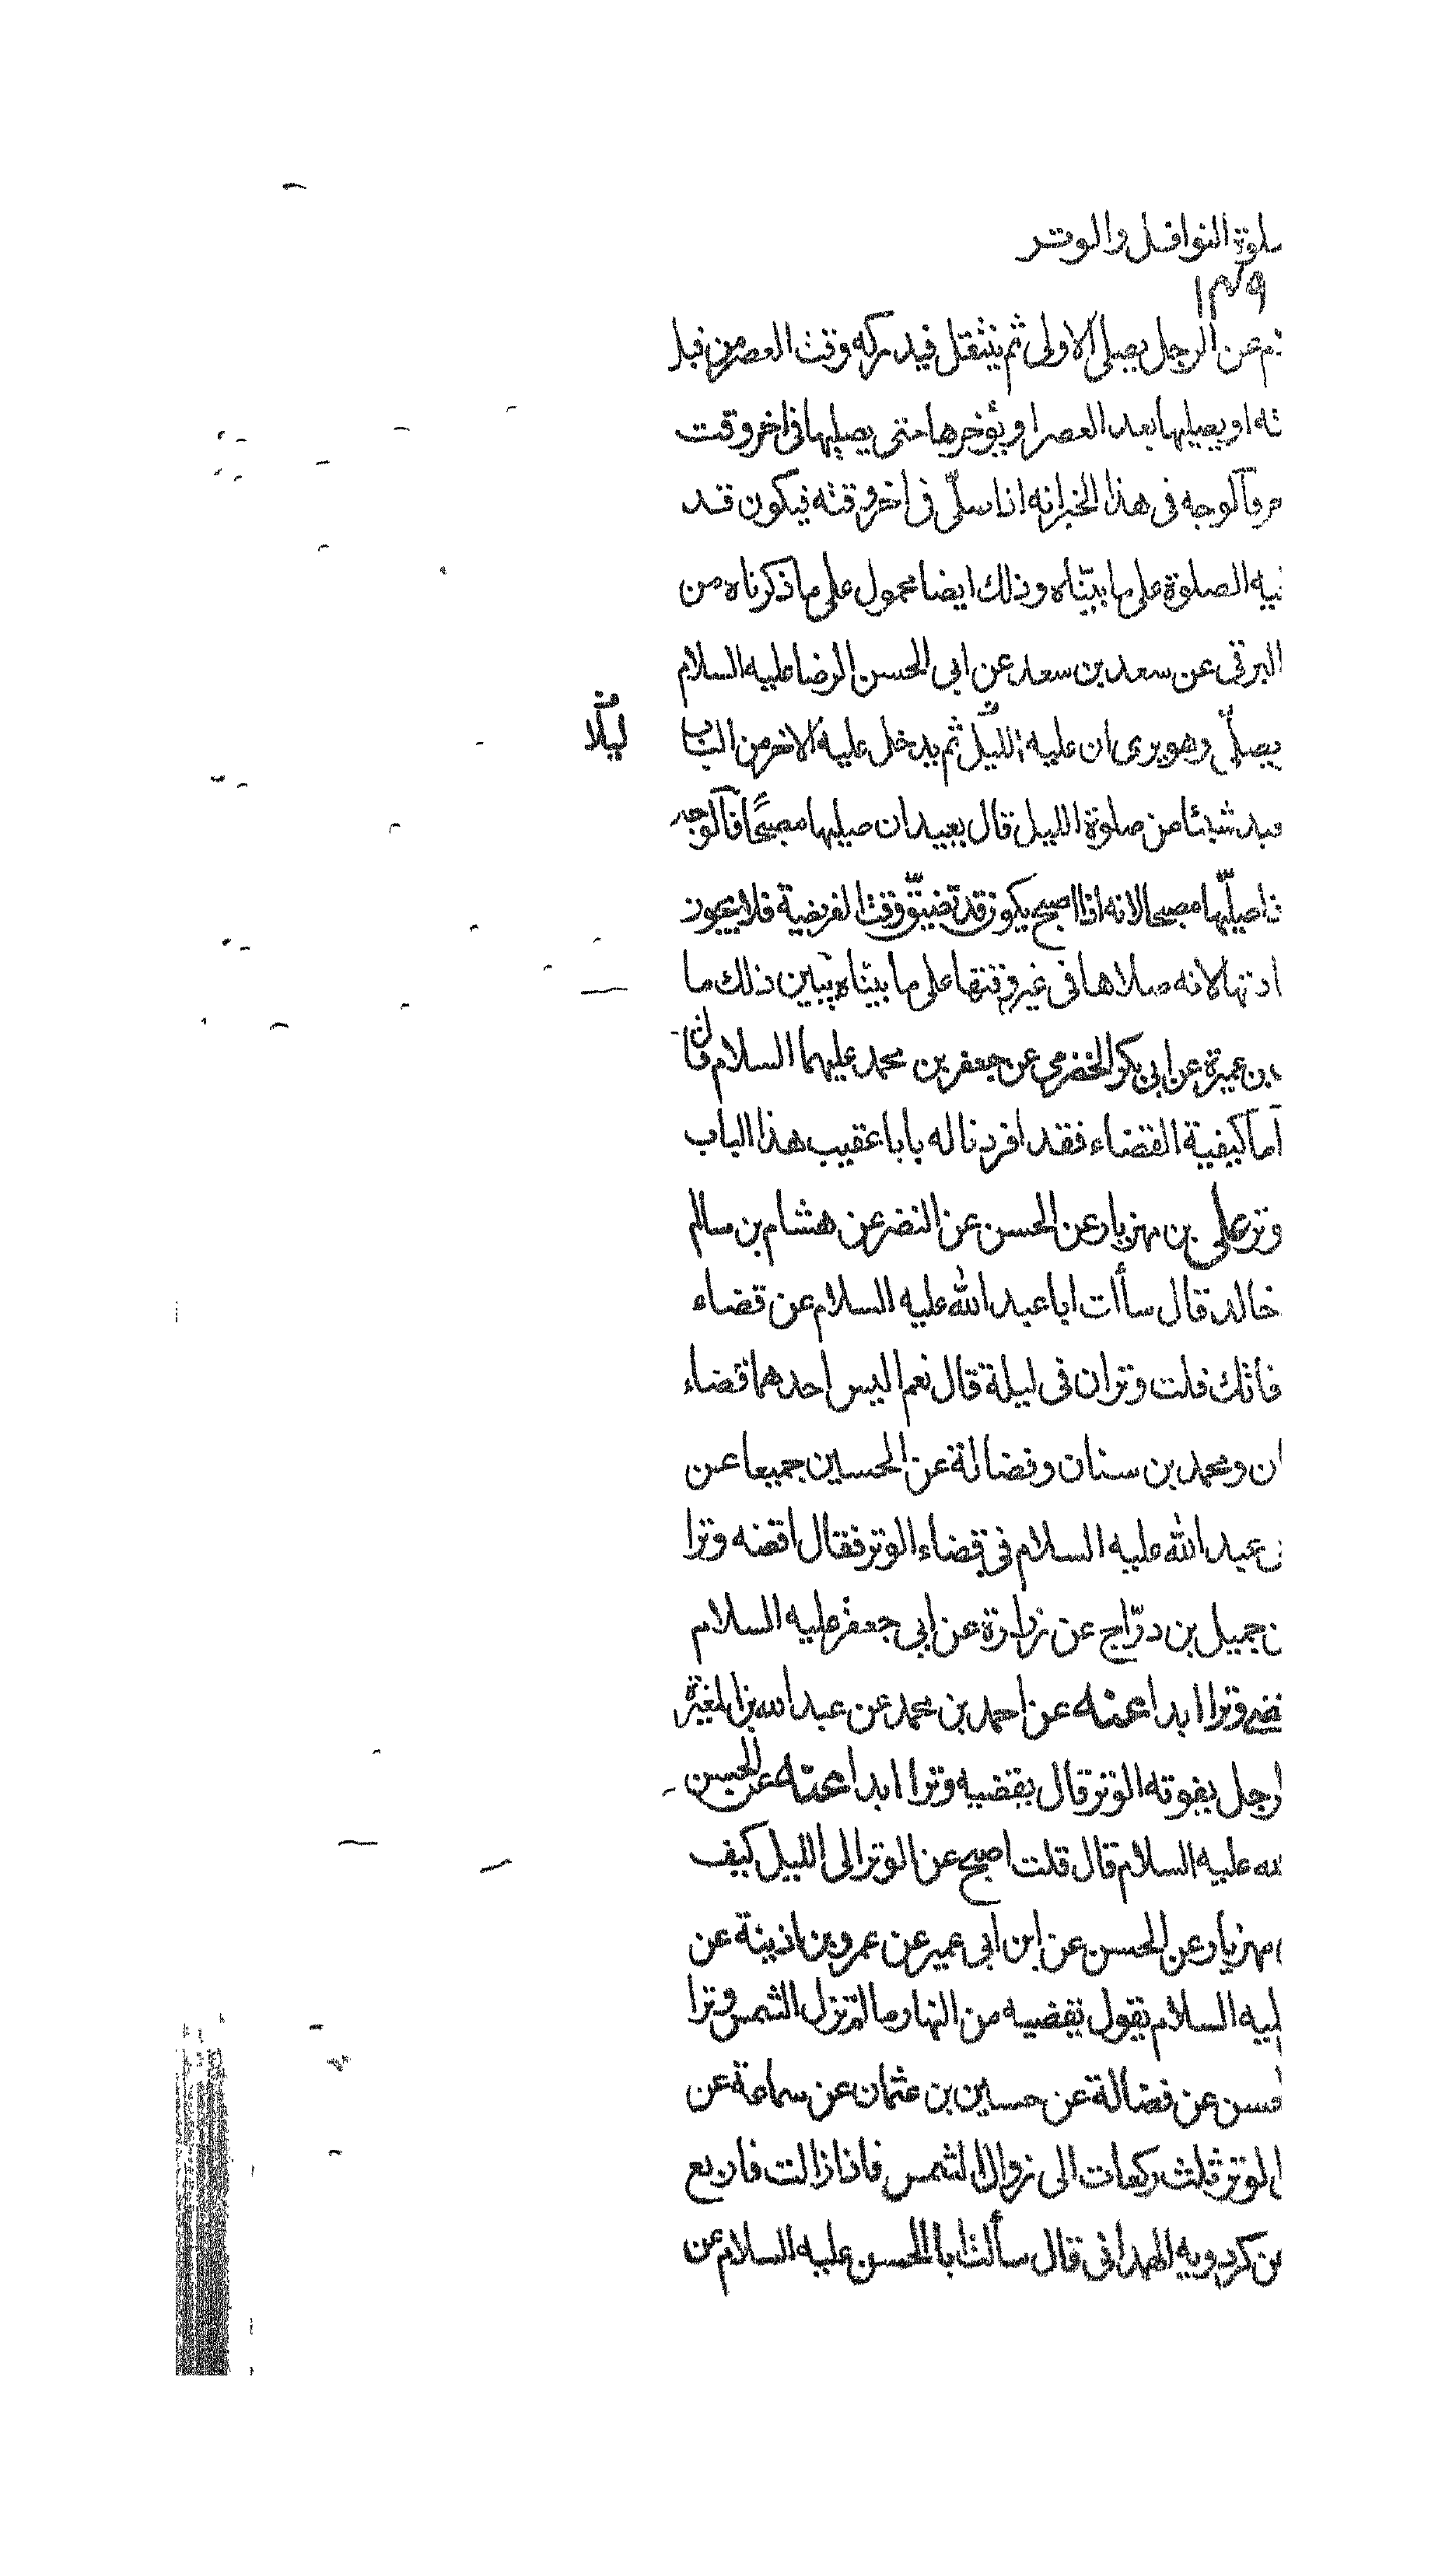 صلوة النوافل والوتر
١٣٩
عن الرجل يصلى الاولى ثم يتنفل فيدركه وقت العصر من قبل
او يصليها بعد العصر او يؤخرها حتى يصليها فى اخر وقت
فالوجه فى هذا الخبر انه اذا صلى فى اخر وقته فيكون قد
الصلوة على ما بيناه وذلك ايضا محمول على ما ذكرناه من
البرقى عن سعد بن سعد عن ابى الحسن الرضا عليه السلام
يصلى وهو يرى ان عليه الليل ثم يدخل عليه الاخر من الباب
ليلا
شيئا من صلوة الليل قال يعيد ان صليها مصبحا فالوجه
صليها مصبحا لانه اذا اصبح يكون قد تضيق وقت الفريضة فلا يجوز
لانه صلاها فى غير وقتها على ما بيناه يبين ذلك ما
بن عميرة عن ابى بكر الحضرمى عن جعفر بن محمد عليهما السلام قال
اما كيفية القضاء فقد افردنا له بابا عقيب هذا الباب
وتر على بن مهزيار عن الحسن عن النضر عن هشام بن سالم
خالد قال سألت ابا عبد الله عليه السلام عن قضاء
فانك قلت وتران فى ليلة قال نعم اليس احدهما قضاء
ان ومحمد بن سنان وفضالة عن الحسين جميعا عن
عبد الله عليه السلام فى قضاء الوتر فقال اقضه وترا
جميل بن درّاج عن زرارة عن ابى جعفر عليه السلام
وترا ابدا عنه عن احمد بن محمد عن عبد الله بن المغيرة
الرجل يفوته الوتر قال يقضيه وترا ابدا عنه عن الحسن
عليه السلام قال قلت اصبح عن الوتر الى الليل كيف
مهزيار عن الحسن عن ابن ابى عمير عن عمر وبن اذينة عن
عليه السلام يقول تقضيه من النهار ما لم تزل الشمس وترا
عن فضالة عن حسين بن عثمان عن سماعة عن
الوتر ثلث ركعات الى زوال الشمس فاذا زالت فاربع
بن كردويه الهمدانى قال سألت ابا الحسن عليه السلام عن